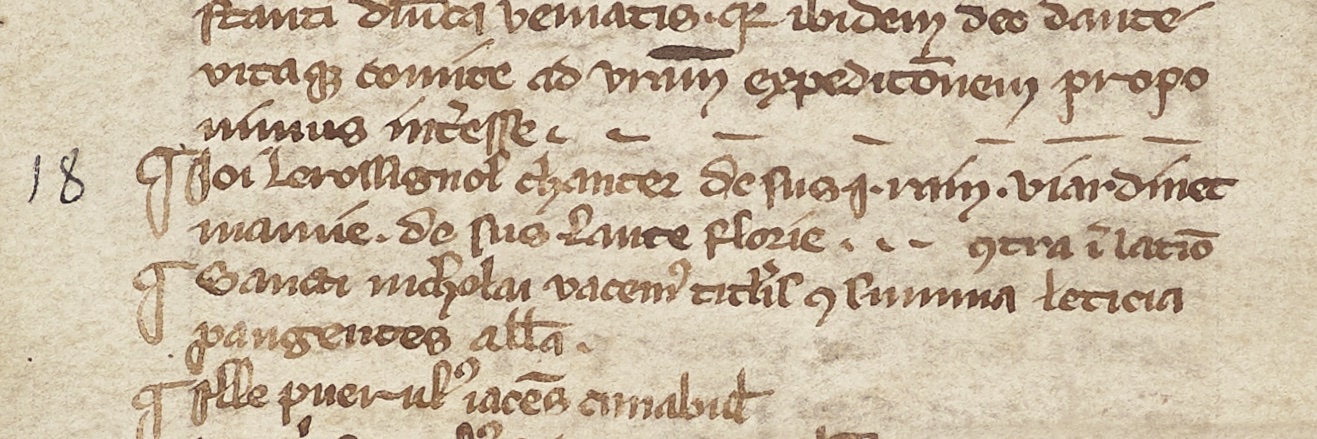 stanti diuica veniatis. qz ibidem deo dante
vitaqz comite ad vram expeditonem propo
nimus int'esse.
18 ¶ Joi lerossignol chanter de sus .i. rain. viardinet
mamie. de sus lante florie . . . 9tra i latio
¶ Sancti nicholai vacem9 titulis 9 summa leticia
pangentes alla.
¶ Ille puerul9 iacens cunabul